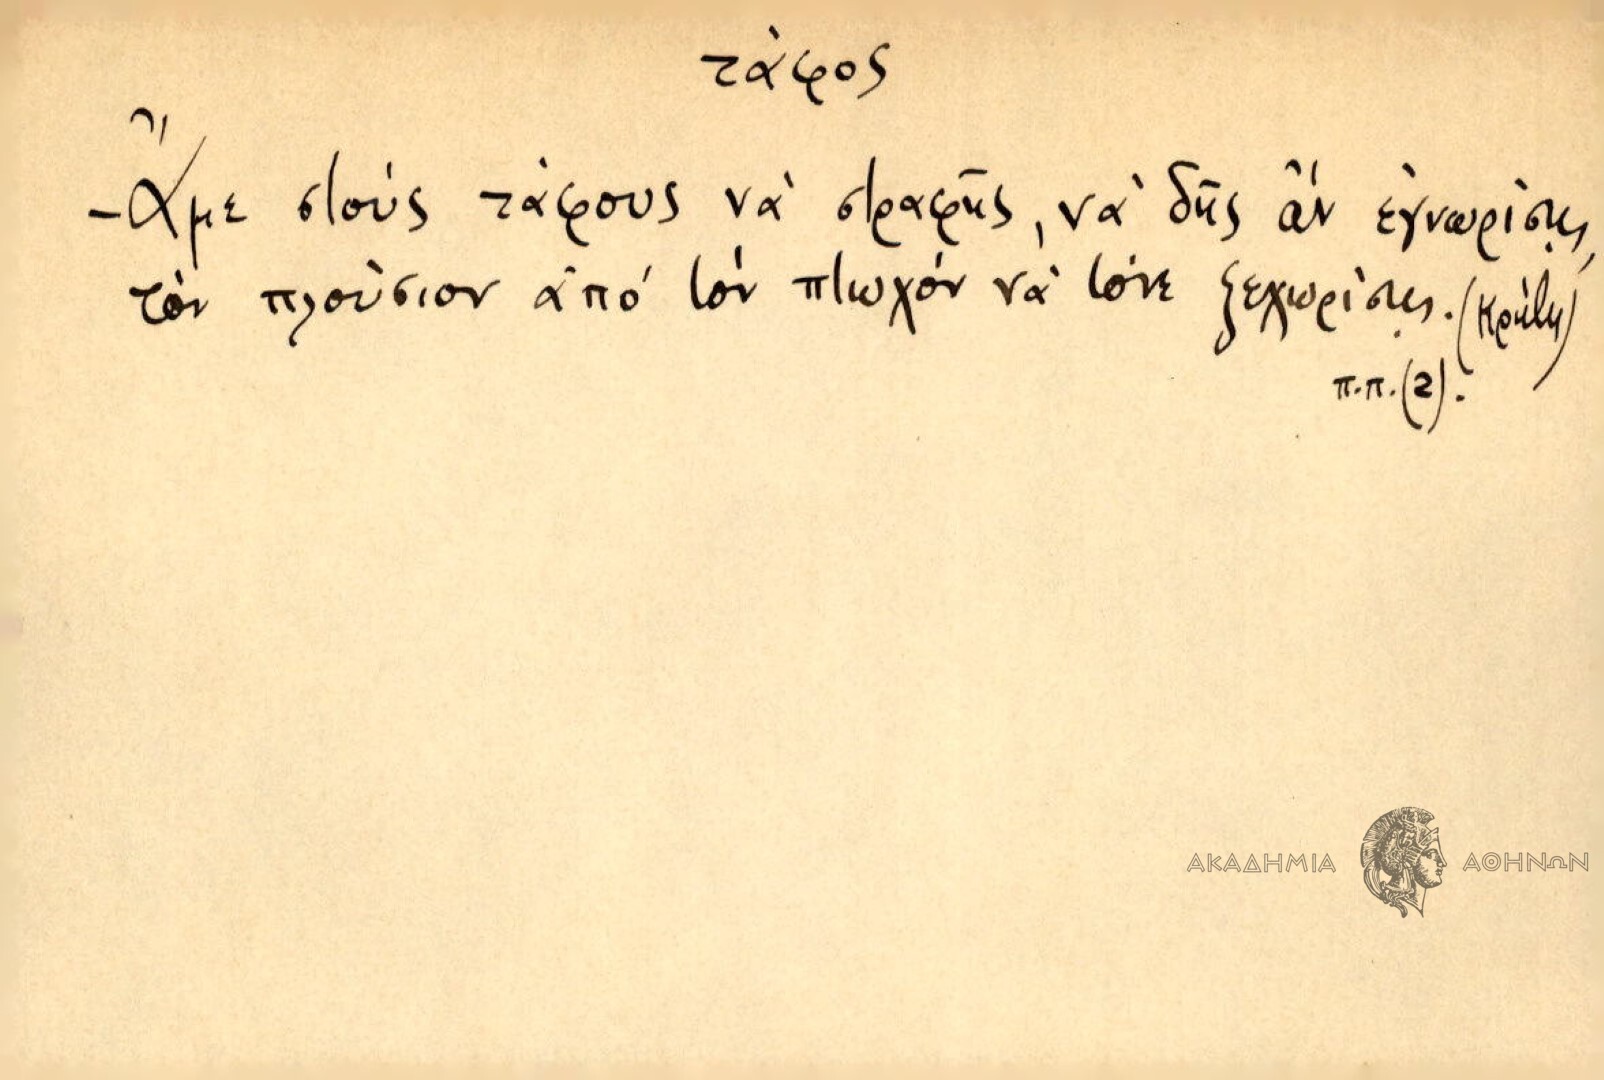 τάφος
- Ἄμε στούς τάφους νά στραφῆς, νά δῆς ἄν ἐγνωρίσῃς,
τόν πλούσιον ἀπό τόν πτωχόν νά τόνε ξεχωρίσῃς. (Κρήτη)
π.π. (2).
ΑΚΑΔΗΜΙΑ ΑΘΗΝΩΝ